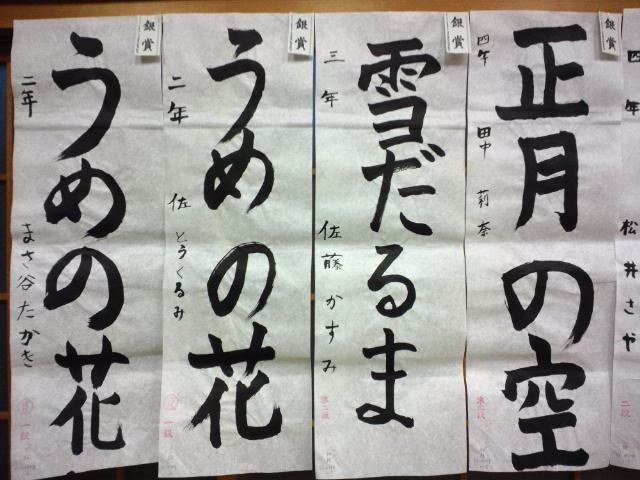 銀賞
正月の空
四年 田中 莉奈
準二段
銀賞
雪だるま
三年 佐藤 かすみ
準二段
銀賞
うめの花
二年 佐とうくるみ
一級
銀賞
うめの花
二年 まさ谷たかき
一級
四年 松井さや
二段